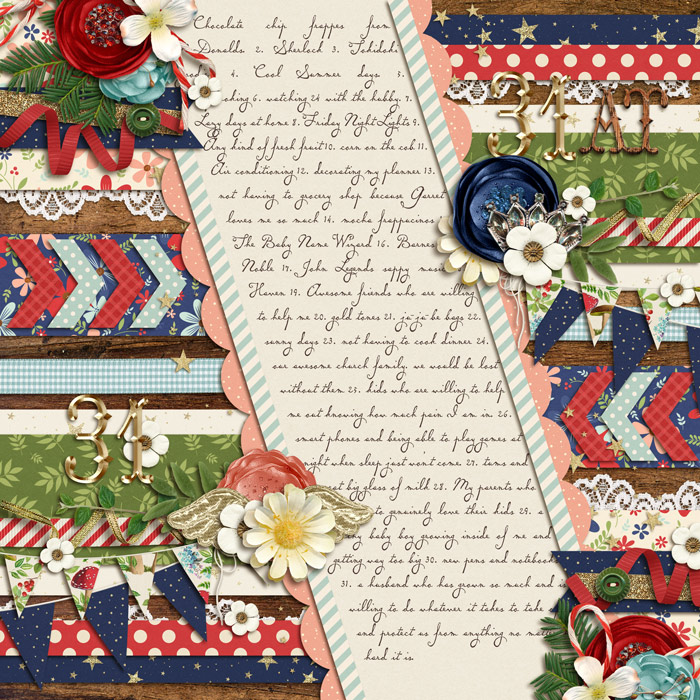 Chocolate chip frappes from
Donalds. 2. Sherlock 3.
4. Cool Summer days 5.
6. watching 24 with the hubby 7.
Lazy days at home 8. Friday Night Lights 9.
Any kind of fresh fruit 10. corn on the cob 11.
Air conditioning 12. decorating my planner 13.
not having to grocery shop because Garret
loves me so much 14. mocha frappacinos
The Baby Name Wizard 16. Barnes
Noble 17. John Legends sappy music
Haven 19. Awesome friends who are willing
to help me 20. gold tones 21. ju-ju-be bags 22.
sunny days 23. not having to cook dinner 24.
our awesome church family. we would be lost
without them 25. kids who are willing to help
me out knowing how much pain I am in 26.
smart phones and being able to play games at
night when sleep just won't come 27. tums and
big glass of milk 28. My parents who
to genuinely love their kids 29. a
baby boy growing inside of me and
getting way too big 30. new pens and notebooks
31. a husband who has grown so much and is
willing to do whatever it takes to take
and protect us from anything no
hard it is.
31 AT
31